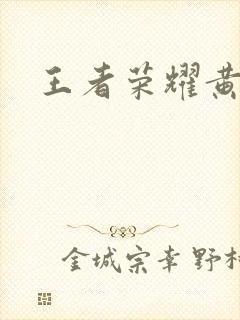 王者荣耀黄
金城宗幸野村